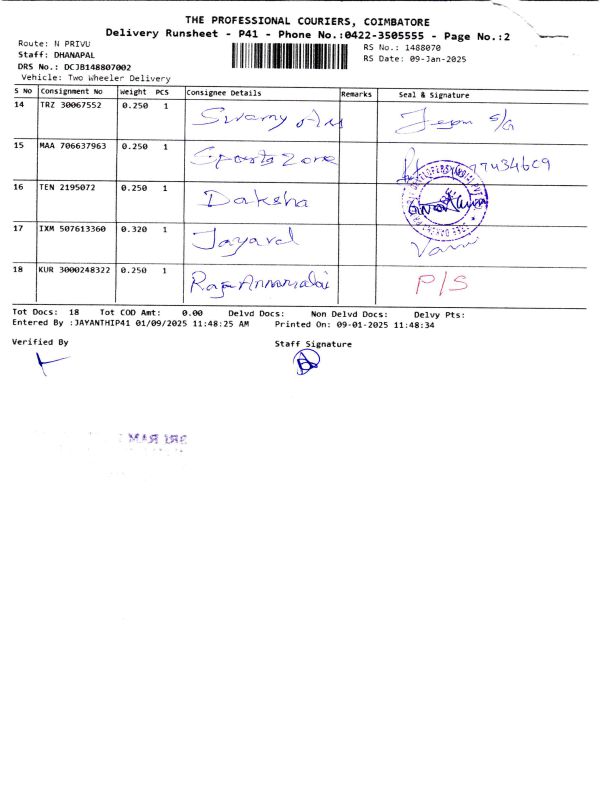 THE PROFESSIONAL COURIERS, COIMBATORE
Delivery Runsheet - P41 - Phone No.:0422-3505555 - Page No.:2
Route: N PRIVU
Staff: DHANAPAL
DRS No.: DCJB148807002
Vehicle: Two Wheeler Delivery
RS No.: 1488070
RS Date: 09-Jan-2025
S No Consignment No Weight PCS Consignee Details Remarks Seal & Signature
14 TRZ 30067552 0.250 1 Swamy
15 MAA 706637963 0.250 1 Sports Zone
16 TEN 2195072 0.250 1 Daksha
17 IXM 507613360 0.320 1 Jayavel Vani
18 KUR 3000248322 0.250 1 Raja Annamalai P/S
Tot Docs: 18 Tot COD Amt: 0.00 Delvd Docs: Non Delvd Docs: Delvy Pts:
Entered By :JAYANTHIP41 01/09/2025 11:48:25 AM Printed On: 09-01-2025 11:48:34
Verified By Staff Signature